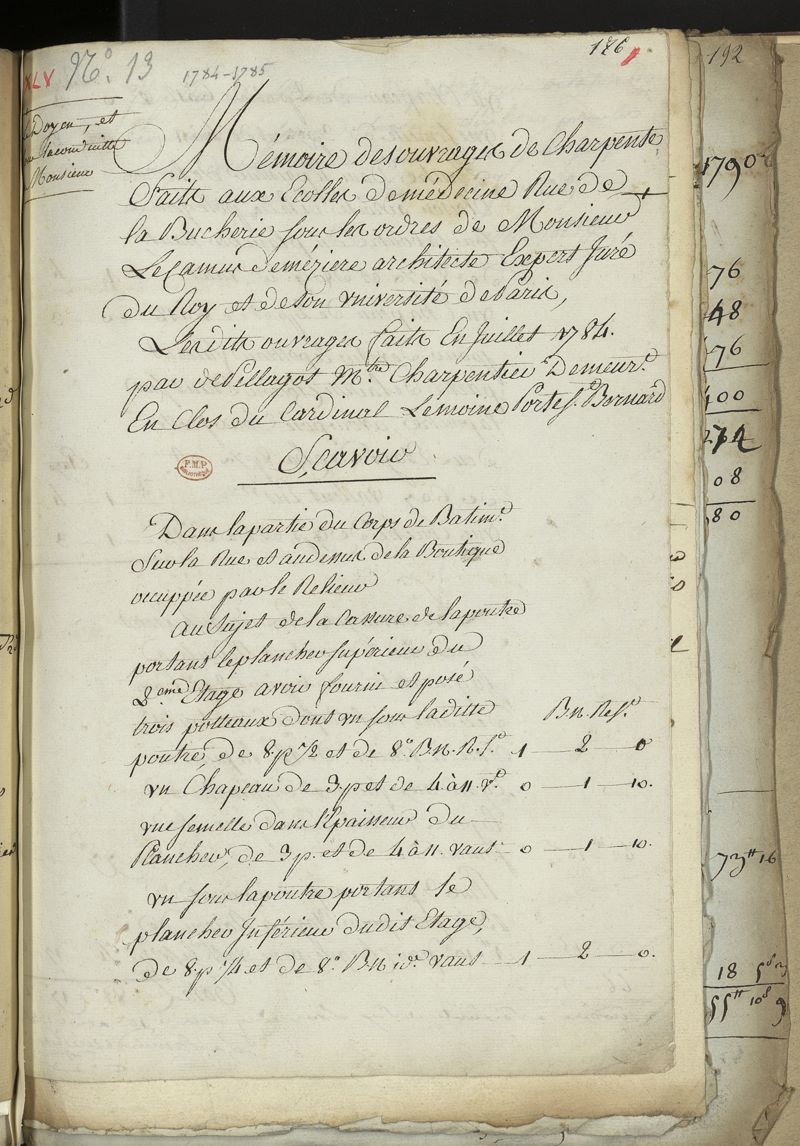 XLV N.º 13 1784-1785
186
192
Doyen, et
la conduitte
Monsieur
Mémoire des ouvrages de Charpente
Faits aux Ecolles de médecine Rue de
la Bucherie sous les ordres de Monsieur
LeCamus de méziere architecte Expert Juré
du Roy et de son université de Paris,
Lesdits ouvrages faits En Juillet 1784.
par de Pellagot M.tre Charpentier Demeur.t
En Clos du Cardinal Lemoine Porte S.t Bernard
Sçavoir
F.M.P
BIBLIOTHEQUE
Dans la partie du Corps de Batim.t
Sur la Rue et audessus de la Boutique
occuppée par le Relieur
au Sujet de la Cassure de la poutre
portans le plancher supérieur du
2.eme Etage avoir fourni et posé
trois potteaux dont un sous laditte
Bn. Ref.t
poutre, de 8.p 1/2 et de 8.º Bn. R.f.t 1 — 2 — 0
un Chapeau de 3.p et de 4 à 11. v.t 0 — 1 — 10.
une semelle dans l'Epaisseur du
Plancher, de 3 p. et de 4 à 11. vaut 0 — 1 — 10.
un sous la poutre portans le
plancher Inférieur dudit Etage,
de 8.p 1/4 et de 8.º Bn id.m vaut 1 — 2 — 0.
1790
76
48
176
400
274
08
80
73tt 16
18 5s
55tt 10s 9